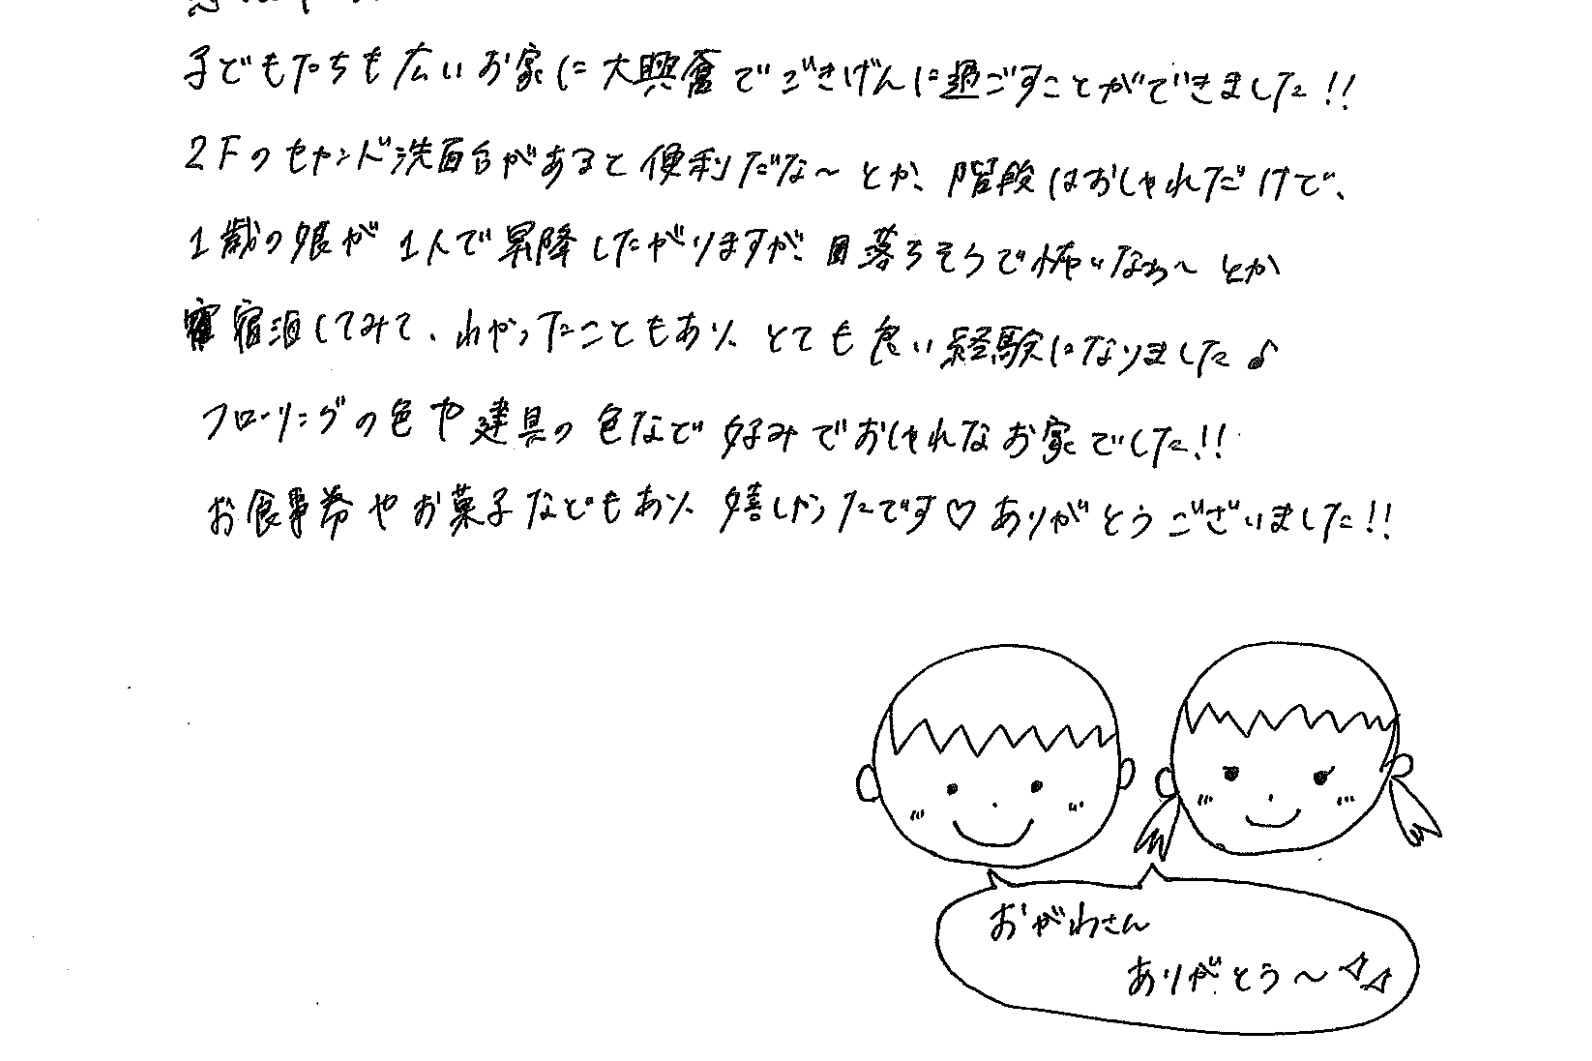 子どもたちも広いお家に大興奮でごきげんに過ごすことができました!!
2Fのセカンド洗面台があると便利だな〜とか、階段はおしゃれだけで、
1歳の娘が1人で昇降したがりますが、落ちそうで怖いなぁ〜とか
宿泊してみて、わかったこともあり、とても良い経験になりました♪
フローリングの色や建具の色など好みでおしゃれなお家でした!!
お食事券やお菓子などもあり、嬉しかったです♡ありがとうございました!!
おがわさん
ありがとう〜☆☆